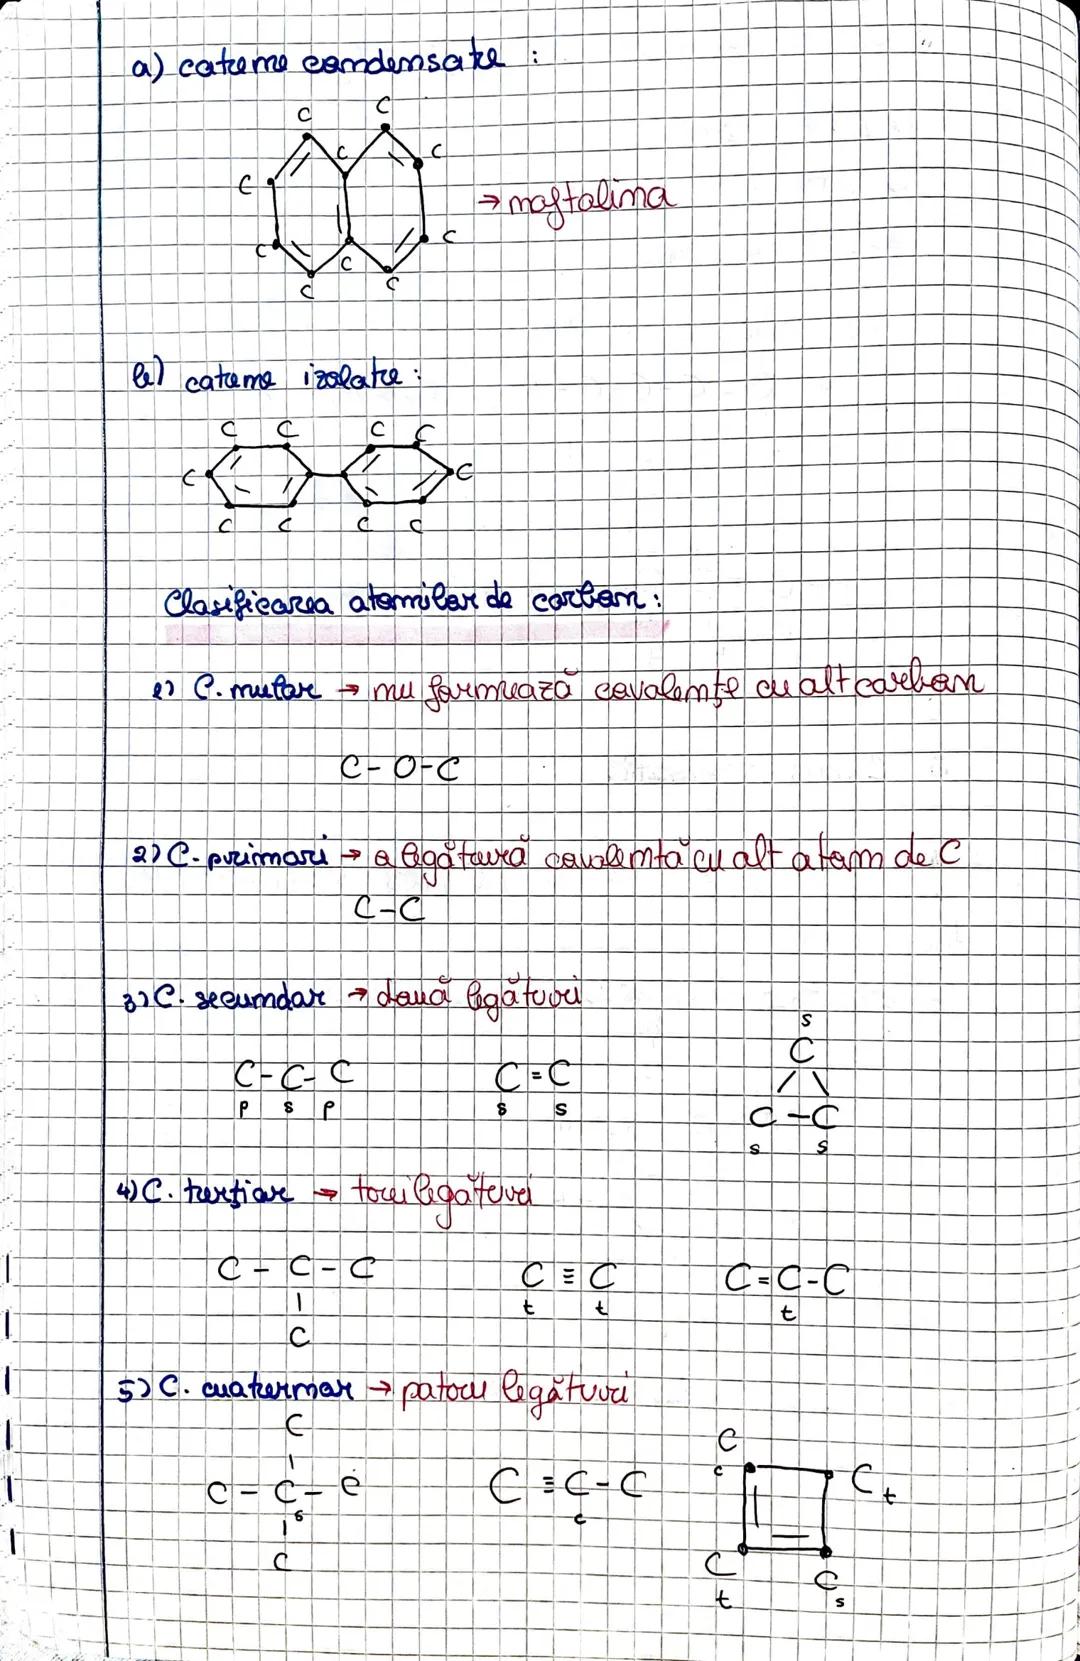 a) catene condensate :
C C
C
C C
→ naftalina
C C
C
C C
b) catene izolate :
C C C C
C C
C C C C
Clasificarea atomilor de carbon :
1) C. nular → nu formează covalențe cu alt carbon
C - O - C
2) C. primari → o legătură covalentă cu alt atom de C
C - C
3) C. secundar → două legături
s
C
C - C - C C = C
p s p s s
C - C
s s
4) C. terțiar → trei legături
C - C - C C ≡ C C = C - C
t t t
C
5) C. cuaternar → patru legături
C
C
c C t
C - C - C C ≡ C - C
s c
C
C C
t s